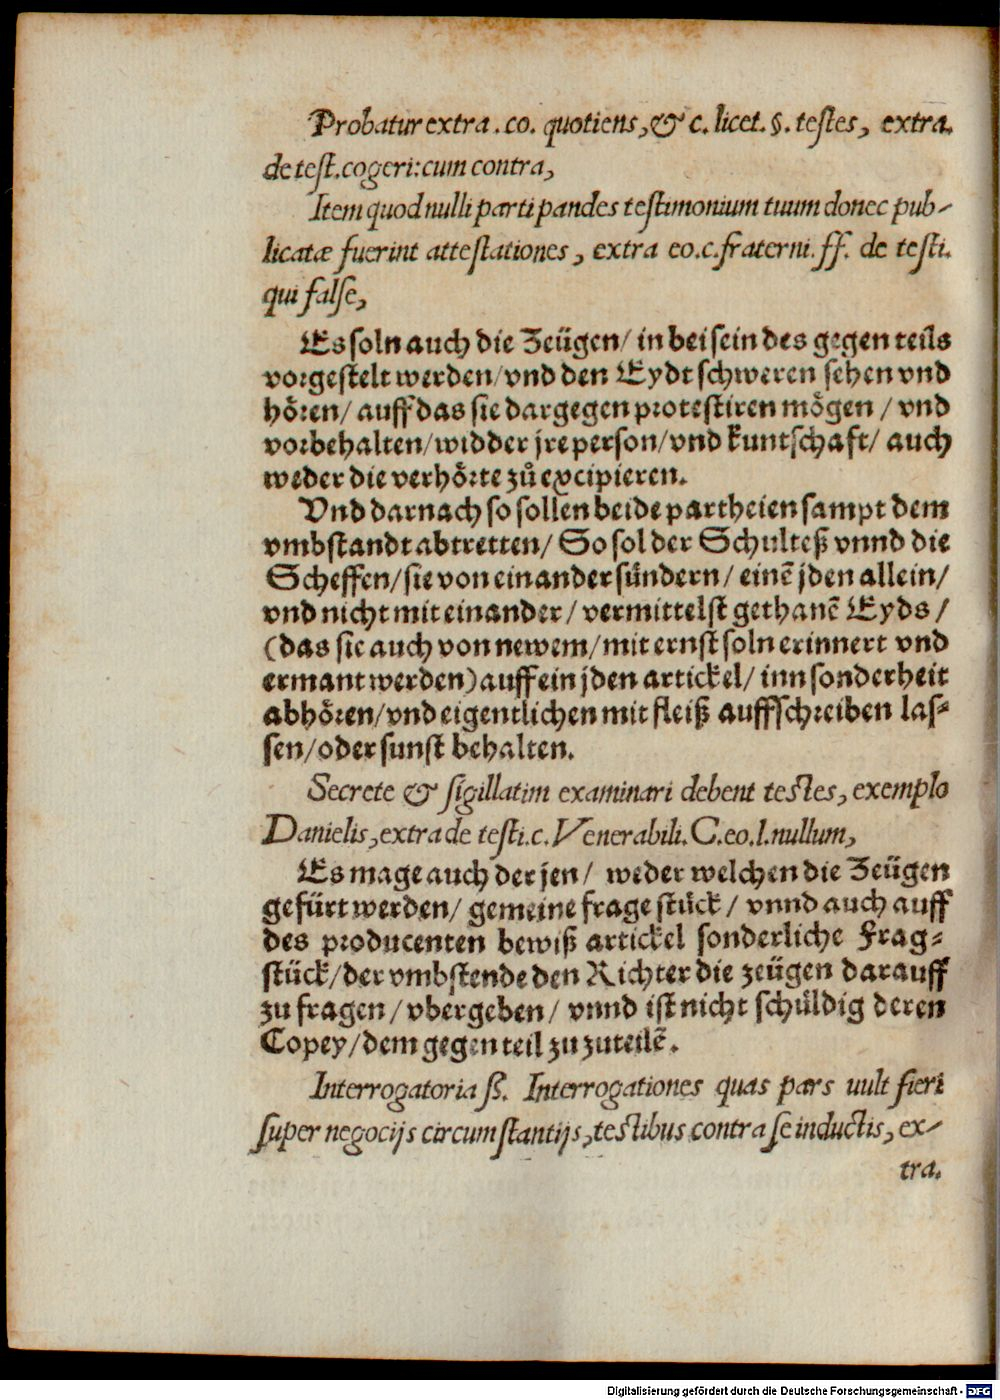 Probatur extra . co. quotiens, & c. licet. §. testes, extra.
de test. cogeri: cum contra,
Item quod nulli parti pandes testimonium tuum donec pub-
licatæ fuerint attestationes, extra eo. c. fraterni. ff. de testi.
qui false,
Es soln auch die Zeügen/ in beisein des gegen teils
vorgestelt werden/ vnd den Eydt schweren sehen vnd
hören/ auff das sie dargegen protestiren mögen / vnd
vorbehalten/ widder jre person/ vnd kuntschaft/ auch
weder die verhörte zůexcipieren.
Vnd darnach so sollen beide partheien sampt dem
vmbstandt abtretten/ So sol der Schulteß vnnd die
Scheffen/ sie von einander sündern/ einē jden allein/
vnd nicht mit einander/ vermittelst gethanē Eyds/
(das sie auch von newem/ mit ernst soln erinnert vnd
ermant werden) auff ein jden artickel/ inn sonderheit
abhören/ vnd eigentlichen mit fleiß auffschreiben las-
sen/ oder sunst behalten.
Secrete & sigillatim examinari debent testes, exemplo
Danielis, extra de testi. c. Venerabili. C. eo. l. nullum,
Es mage auch der jen/ weder welchen die Zeügen
gefürt werden/ gemeine frage stück/ vnnd auch auff
des producenten bewiß artickel sonderliche Frag-
stück/ der vmbstende den Richter die zeügen darauff
zu fragen/ vbergeben/ vnnd ist nicht schüldig deren
Copey/ dem gegenteil zu zuteilē.
Interrogatoria ß. Interrogationes quas pars uult fieri
super negocijs circumstantijs, testibus contra se inductis, ex-
tra.
Digitalisierung gefördert durch die Deutsche Forschungsgemeinschaft - DFG